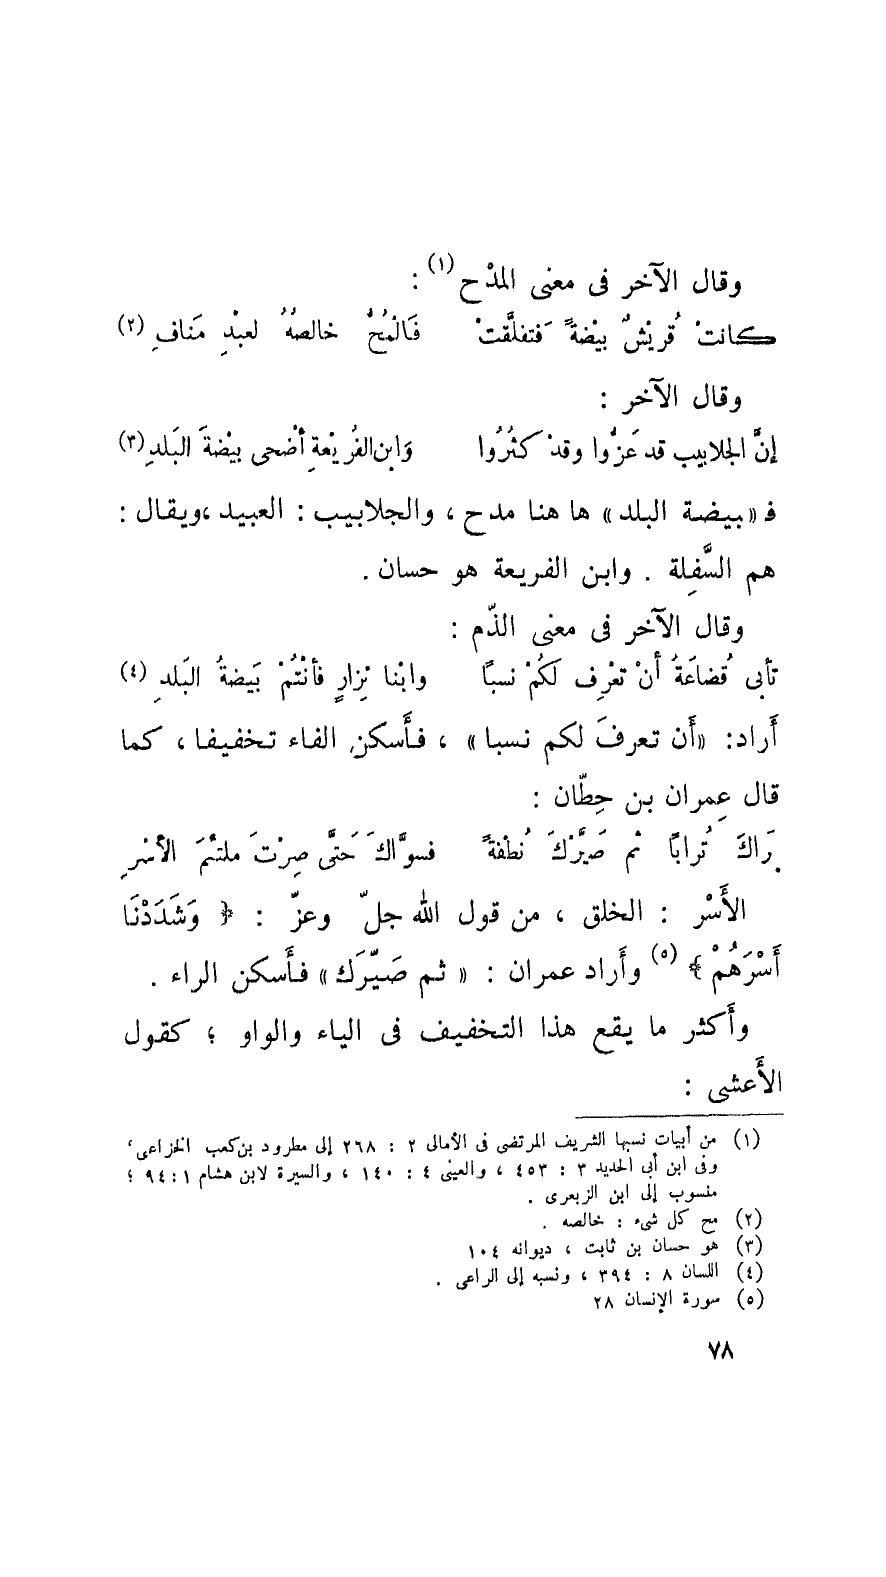 وقال الآخر فى معنى المدْح (١) :
كانتْ قُريْشٌ بيْضةً فتفلَّقتْ فَالْمُحُّ خالصُهُ لعبْدِ مَنافِ (٢)
وقال الآخر :
إنَّ الجلابيب قد عَزُّوا وقدْ كثُرُوا وَابن الفُرَيْعةِ أضْحى بيْضةَ البَلدِ (٣)
فـ «بيضة البلد» ها هنا مدح ، والجلابيب : العبيد ،ويقال :
هم السَّفِلة . وابن الفريعة هو حسان .
وقال الآخر فى معنى الذّم :
تأبى قُضاعَةُ أنْ تعْرِف لَكُمْ نسبًا وابْنا نِزارٍ فأنْتُمْ بَيضةُ البَلدِ (٤)
أَراد: «أَن تعرفَ لكم نسبا» ، فأَسكن الفاء تخفيفا ، كما
قال عِمران بن حِطّان :
بَرَاكَ تُرابًا ثم صَيَّرْكَ نُطْفةً فسوَّاكَ حَتَّى صِرْتَ ملتئمَ الأسْرِ
الأَسْر : الخلق ، من قول الله جلّ وعزّ : ﴿ وَشَدَدْنَا
أَسْرَهُمْ ﴾ (٥) وأَراد عمران : « ثم صَيّرَك» فأَسكن الراء .
وأَكثر ما يقع هذا التخفيف فى الياء والواو ؛ كقول
الأَعشى :
(١) من أبيات نسبها الشريف المرتضى فى الأمالى ٢ : ٢٦٨ إلى مطرود بن كعب الخزاعى ،
وفى ابن أبى الحديد ٣ : ٤٥٣ ، والعينى ٤ : ١٤٠ ، والسيرة لابن هشام ١ : ٩٤ ؛
منسوب إلى ابن الزبعرى .
(٢) مح كل شىء : خالصه .
(٣) هو حسان بن ثابت ، ديوانه ١٠٤
(٤) اللسان ٨ : ٣٩٤ ، ونسبه إلى الراعى .
(٥) سورة الإنسان ٢٨
٧٨